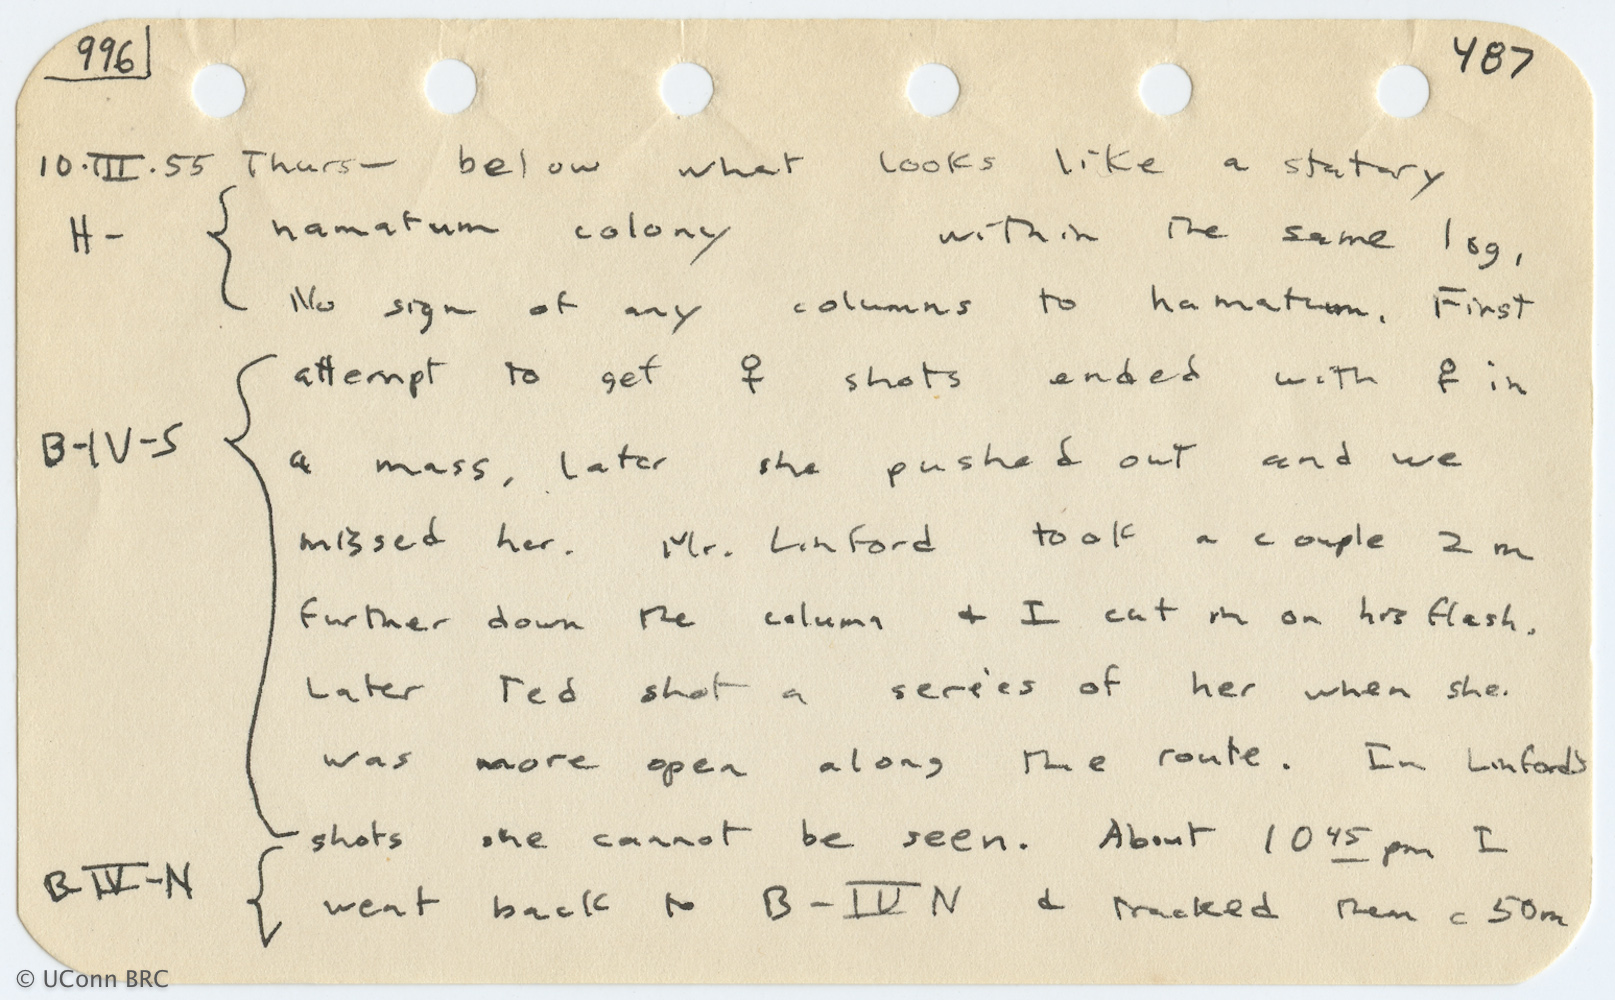 996
487
10.III.55 Thurs— below what looks like a statary
H- hamatum colony within the same log,
No sign of any columns to hamatum. First
attempt to get ♀ shots ended with ♀ in
B-IV-S a mass, later she pushed out and we
missed her. Mr. Linford took a couple 2 m
further down the column & I cut in on his flash.
Later Ted shot a series of her when she.
was more open along the route. In Linford's
shots she cannot be seen. About 10 45 pm I
B-IV-N went back to B-IV N & tracked them c 50m
© UConn BRC